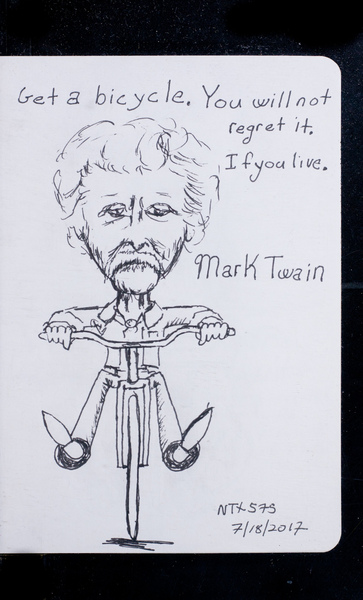 Get a bicycle. You will not
regret it.
If you live.
Mark Twain
NTX575
7/18/2017